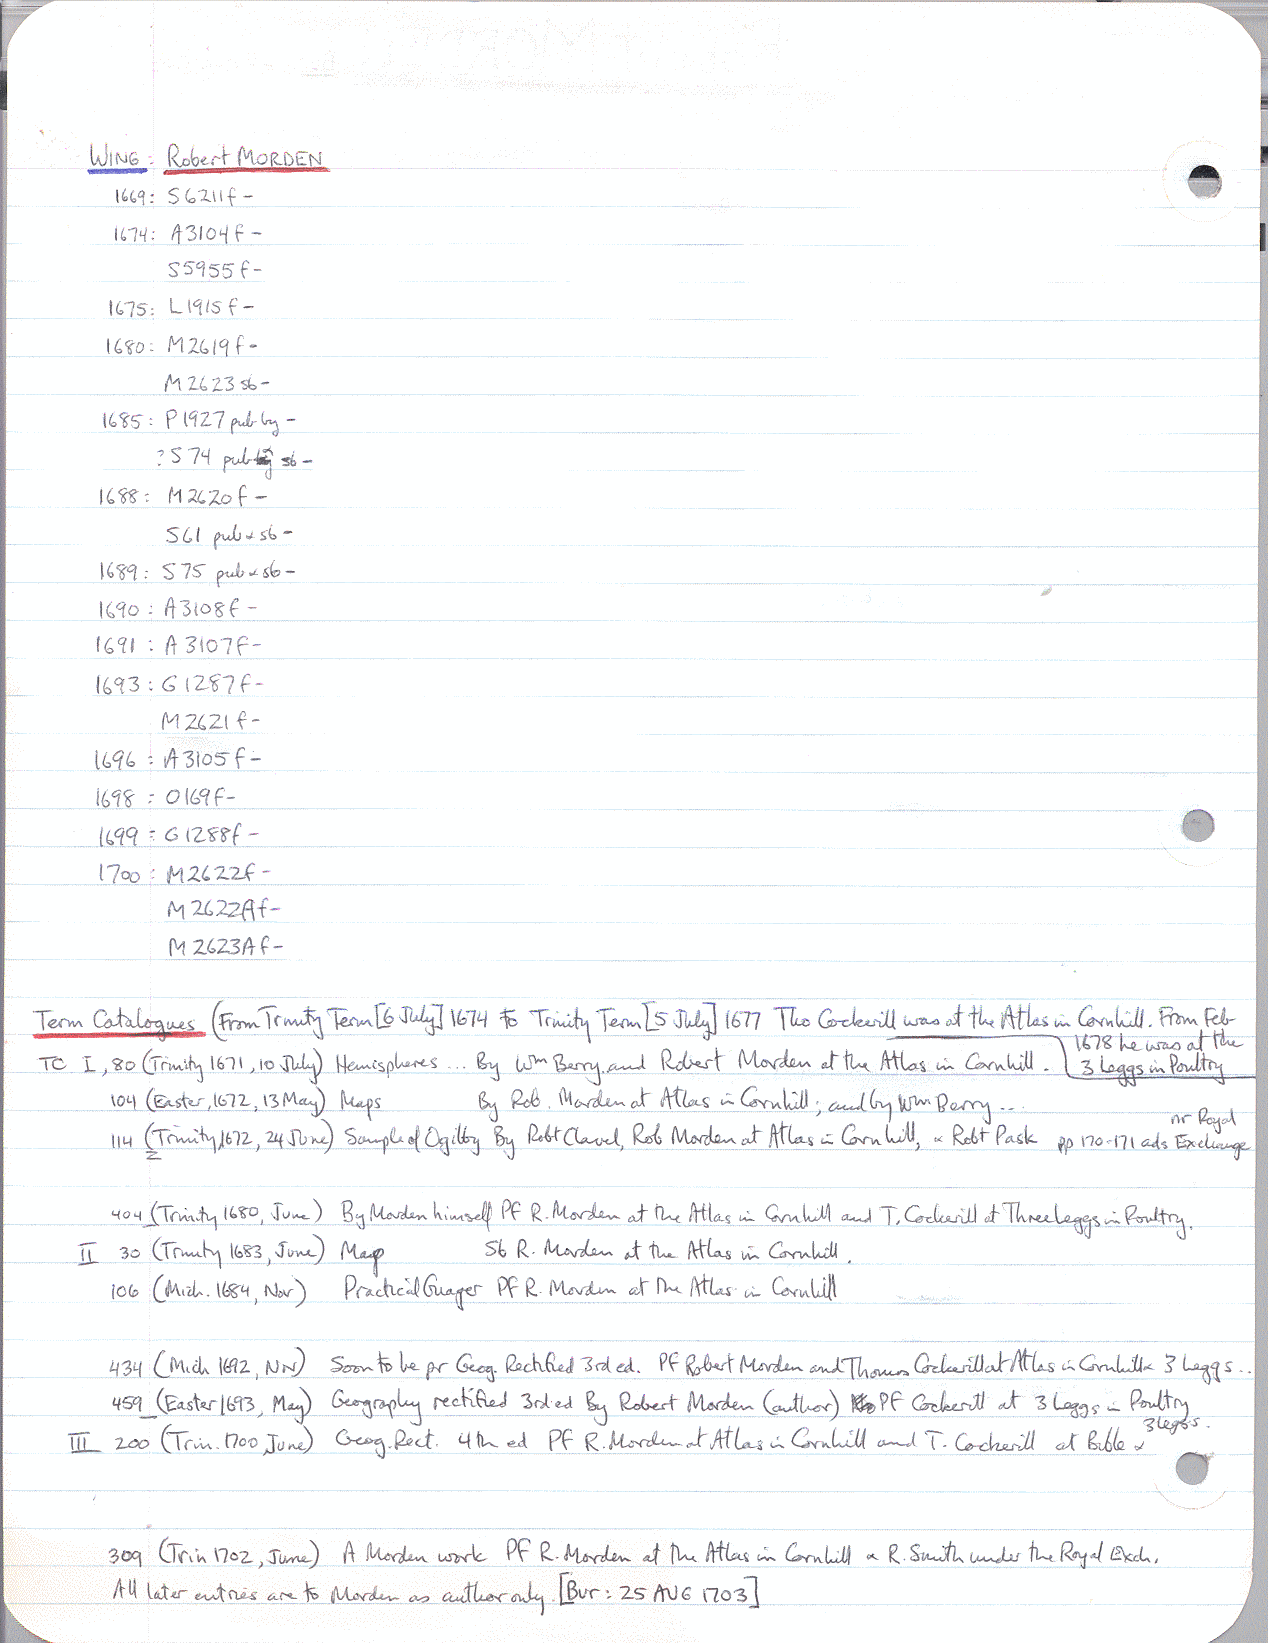 WING: Robert MORDEN
1669: S6211 f -
1674: A3104 f -
S5955 f -
1675: L1915 f -
1680: M2619 f -
M2623 sb -
1685: P1927 pub by -
? S74 pub sb -
1688: M2620 f -
S61 pub & sb -
1689: S75 pub & sb -
1690: A3108 f -
1691: A3107 f -
1693: G1287 f -
M2621 f -
1696: A3105 f -
1698: O169 f -
1699: G1288 f -
1700: M2622 f -
M2622A f -
M2623A f -
Term Catalogues (From Trinity Term [6 July] 1674 to Trinity Term [5 July] 1677 Tho Cockerill was at the Atlas in Cornhill. From Feb
1678 he was at the
3 Leggs in Poultry
TC I, 80 (Trinity 1671, 10 July) Hemispheres ... By Wm Berry, and Robert Morden at the Atlas in Cornhill.
104 (Easter, 1672, 13 May) Maps By Rob. Morden at Atlas in Cornhill; and by Wm Berry ...
114 (Trinity, 1672, 24 June) Sample of Ogilby By Robt Clavel, Rob Morden at Atlas in Cornhill, & Robt Pask pp 170-171 ads nr Royal Exchange
404 (Trinity 1680, June) By Morden himself PF R. Morden at the Atlas in Cornhill and T. Cockerill at Three Leggs in Poultry.
II 30 (Trinity 1683, June) Map Sb R. Morden at the Atlas in Cornhill.
106 (Mich. 1684, Nov) Practical Guager PF R. Morden at the Atlas in Cornhill
434 (Mich 1692, Nov) Soon to be pr Geog. Rectified 3rd ed. PF Robert Morden and Thomas Cockerill at Atlas in Cornhill & 3 Leggs ..
459 (Easter 1693, May) Geography rectified 3rd ed By Robert Morden (author) PF Cockerill at 3 Leggs in Poultry
III 200 (Trin. 1700, June) Geog. Rect. 4th ed PF R. Morden at Atlas in Cornhill and T. Cockerill at Bible & 3 leggs.
309 (Trin 1702, June) A Morden work PF R. Morden at the Atlas in Cornhill & R. Smith under the Royal Exch.
All later entries are to Morden as author only. [Bur: 25 AUG 1703]